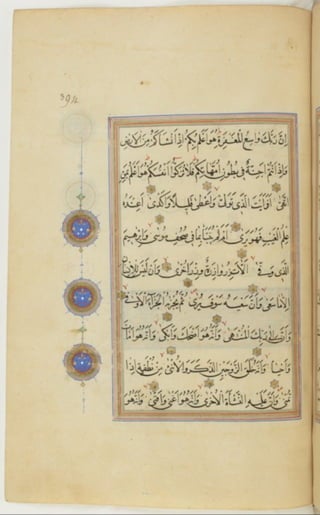 إن ربك واسع المغفرة هو أعلم بكم إذ أنشأكم من الأرض
وإذ أنتم أجنة في بطون أمهاتكم فلا تزكوا أنفسكم هو أعلم بمن
اتقى أفرأيت الذي تولى وأعطى قليلا وأكدى أعنده
علم الغيب فهو يرى أم لم ينبأ بما في صحف موسى وإبراهيم
الذي وفى ألا تزر وازرة وزر أخرى وأن ليس للإنسان
إلا ما سعى وأن سعيه سوف يرى ثم يجزاه الجزاء الأوفى
وأن إلى ربك المنتهى وأنه هو أضحك وأبكى وأنه هو أمات
وأحيا وأنه خلق الزوجين الذكر والأنثى من نطفة إذا
تمنى وأن عليه النشأة الأخرى وأنه هو أغنى وأقنى وأنه هو